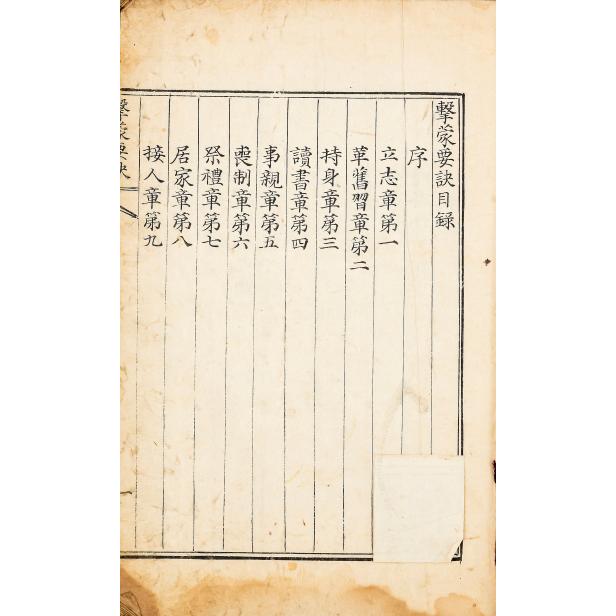 擊蒙要訣目錄
序
立志章第一
革舊習章第二
持身章第三
讀書章第四
事親章第五
喪制章第六
祭禮章第七
居家章第八
接人章第九
擊蒙要訣